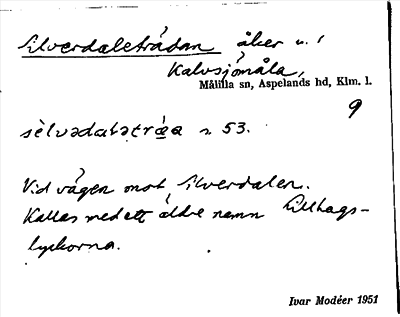 Silverdaleträdan åker u. /
Kalvsjömåla,
Målilla sn, Aspelands hd, Klm. l.
9
sèlvədalətrǽa s. 53.
Vid vägen mot Silverdalen.
Kallas med ett äldre namn Lillhags-
lyckorna.
Ivar Modéer 1951